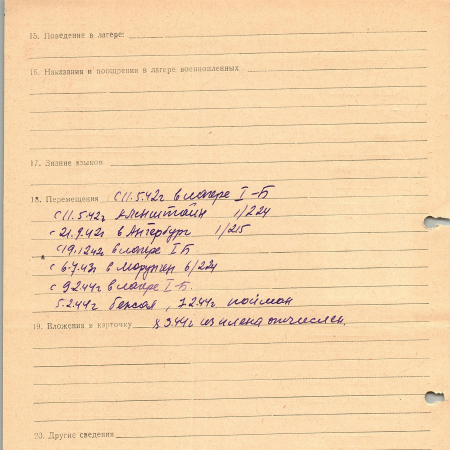 15. Поведение в лагере:
16. Наказания и поощрения в лагере военнопленных
17. Знание языков
18. Перемещения с 11.5.42г в лагере I-Б
с 11.5.42г Аленштайн 1/224
с 21.9.42г в Ангербург 1/215
с 19.12.42 в лагере IБ
с 6.7.43г в Морунген 6/224
с 9.2.44г в лагере I-Б.
5.2.44г бежал, 7.2.44г пойман
19. Вложения в карточку 8.3.44г из плена отчислен.
20. Другие сведения